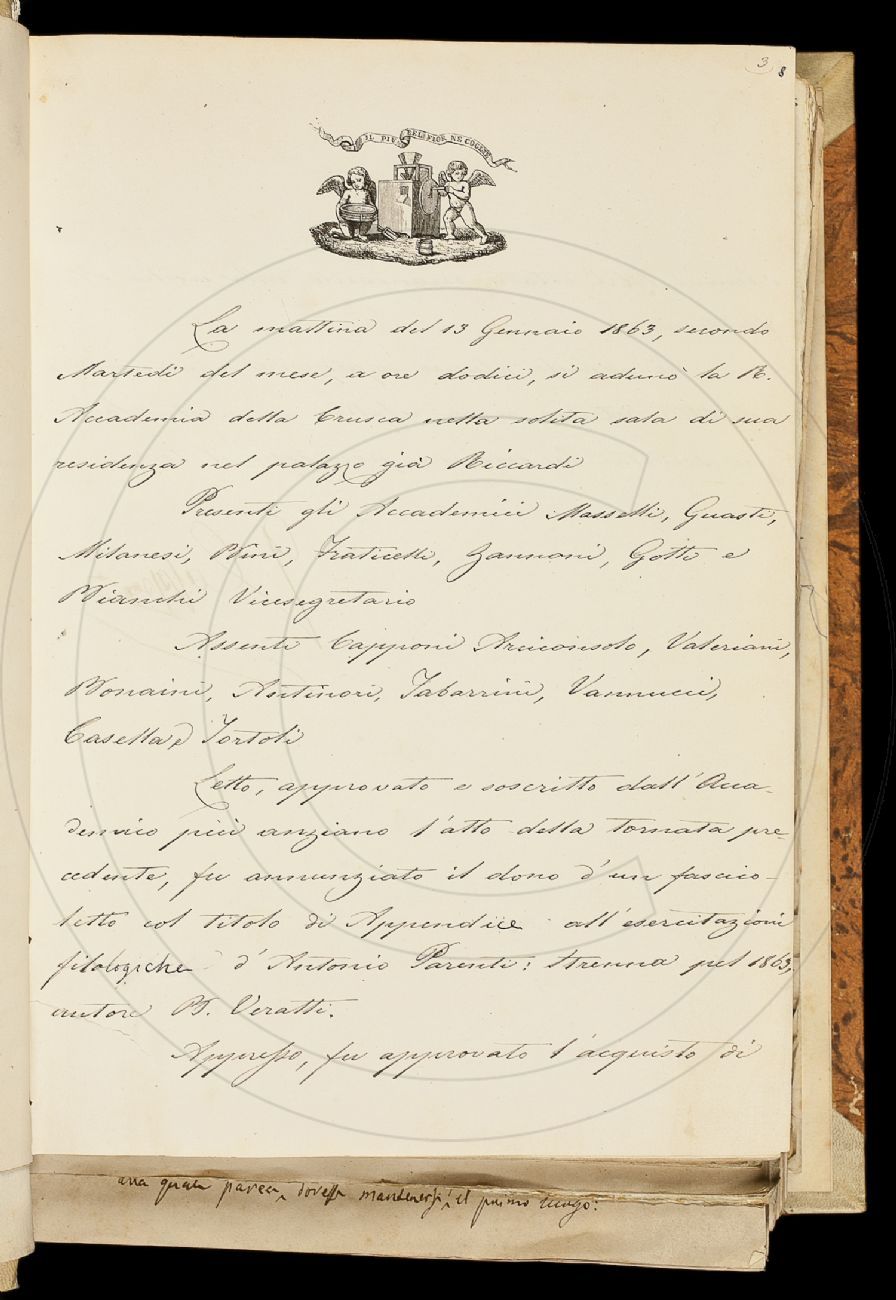 3
8
IL PIÙ BEL FIOR NE COGLIE
La mattina del 13 Gennaio 1863, secondo
Martedì del mese, a ore dodici, si adunò la R.
Accademia della Crusca nella solita sala di sua
residenza nel palazzo già Riccardi
Presenti gli Accademici Masselli, Guasti,
Milanesi, Bini, Fraticelli, Zannoni, Gotti e
Bianchi Vicesegretario
Assenti Capponi Arciconsolo, Valeriani,
Bonaini, Antinori, Tabarrini, Vannucci,
Casella e Tortoli
Letto, approvato e soscritto dall'Acca-
demico più anziano l'atto della tornata pre-
cedente, fu annunziato il dono d'un fascico-
letto col titolo di Appendice all'esercitazioni
filologiche d'Antonio Parenti: Strenna pel 1863,
autore B. Veratti.
Appresso, fu approvato l'acquisto di
una quale parea dovesse mantenersi il primo luogo: